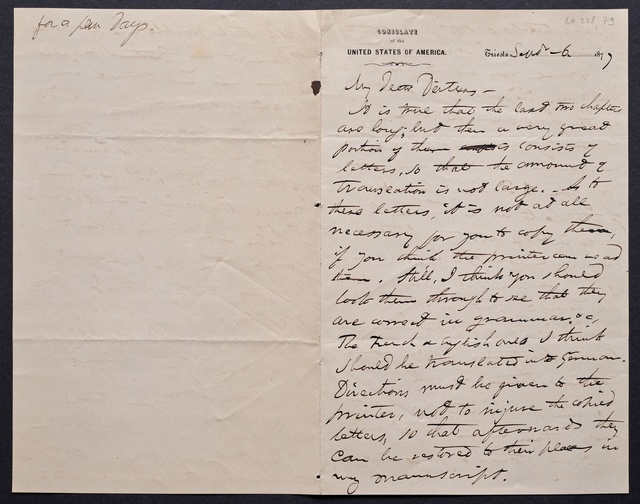 for a few days.
CONSULATE
of the
UNITED STATES OF AMERICA.
Trieste, Sept. 6 1877
My Dear Deiters –
It is true that the last two chapters
are long; but then a very great
portion of them consists of
letters, so that the amount of
translation is not large. – As to
these letters, it is not at all
necessary for you to copy them,
if you think the printer can read
them. Still, I think you should
look them through to see that they
are correct in grammar &c,
The French & English ones I think
should be translated into German.
Directions must be given to the
printer, not to injure the copied
letters, so that afterwards they
can be restored to their places in
my manuscript.